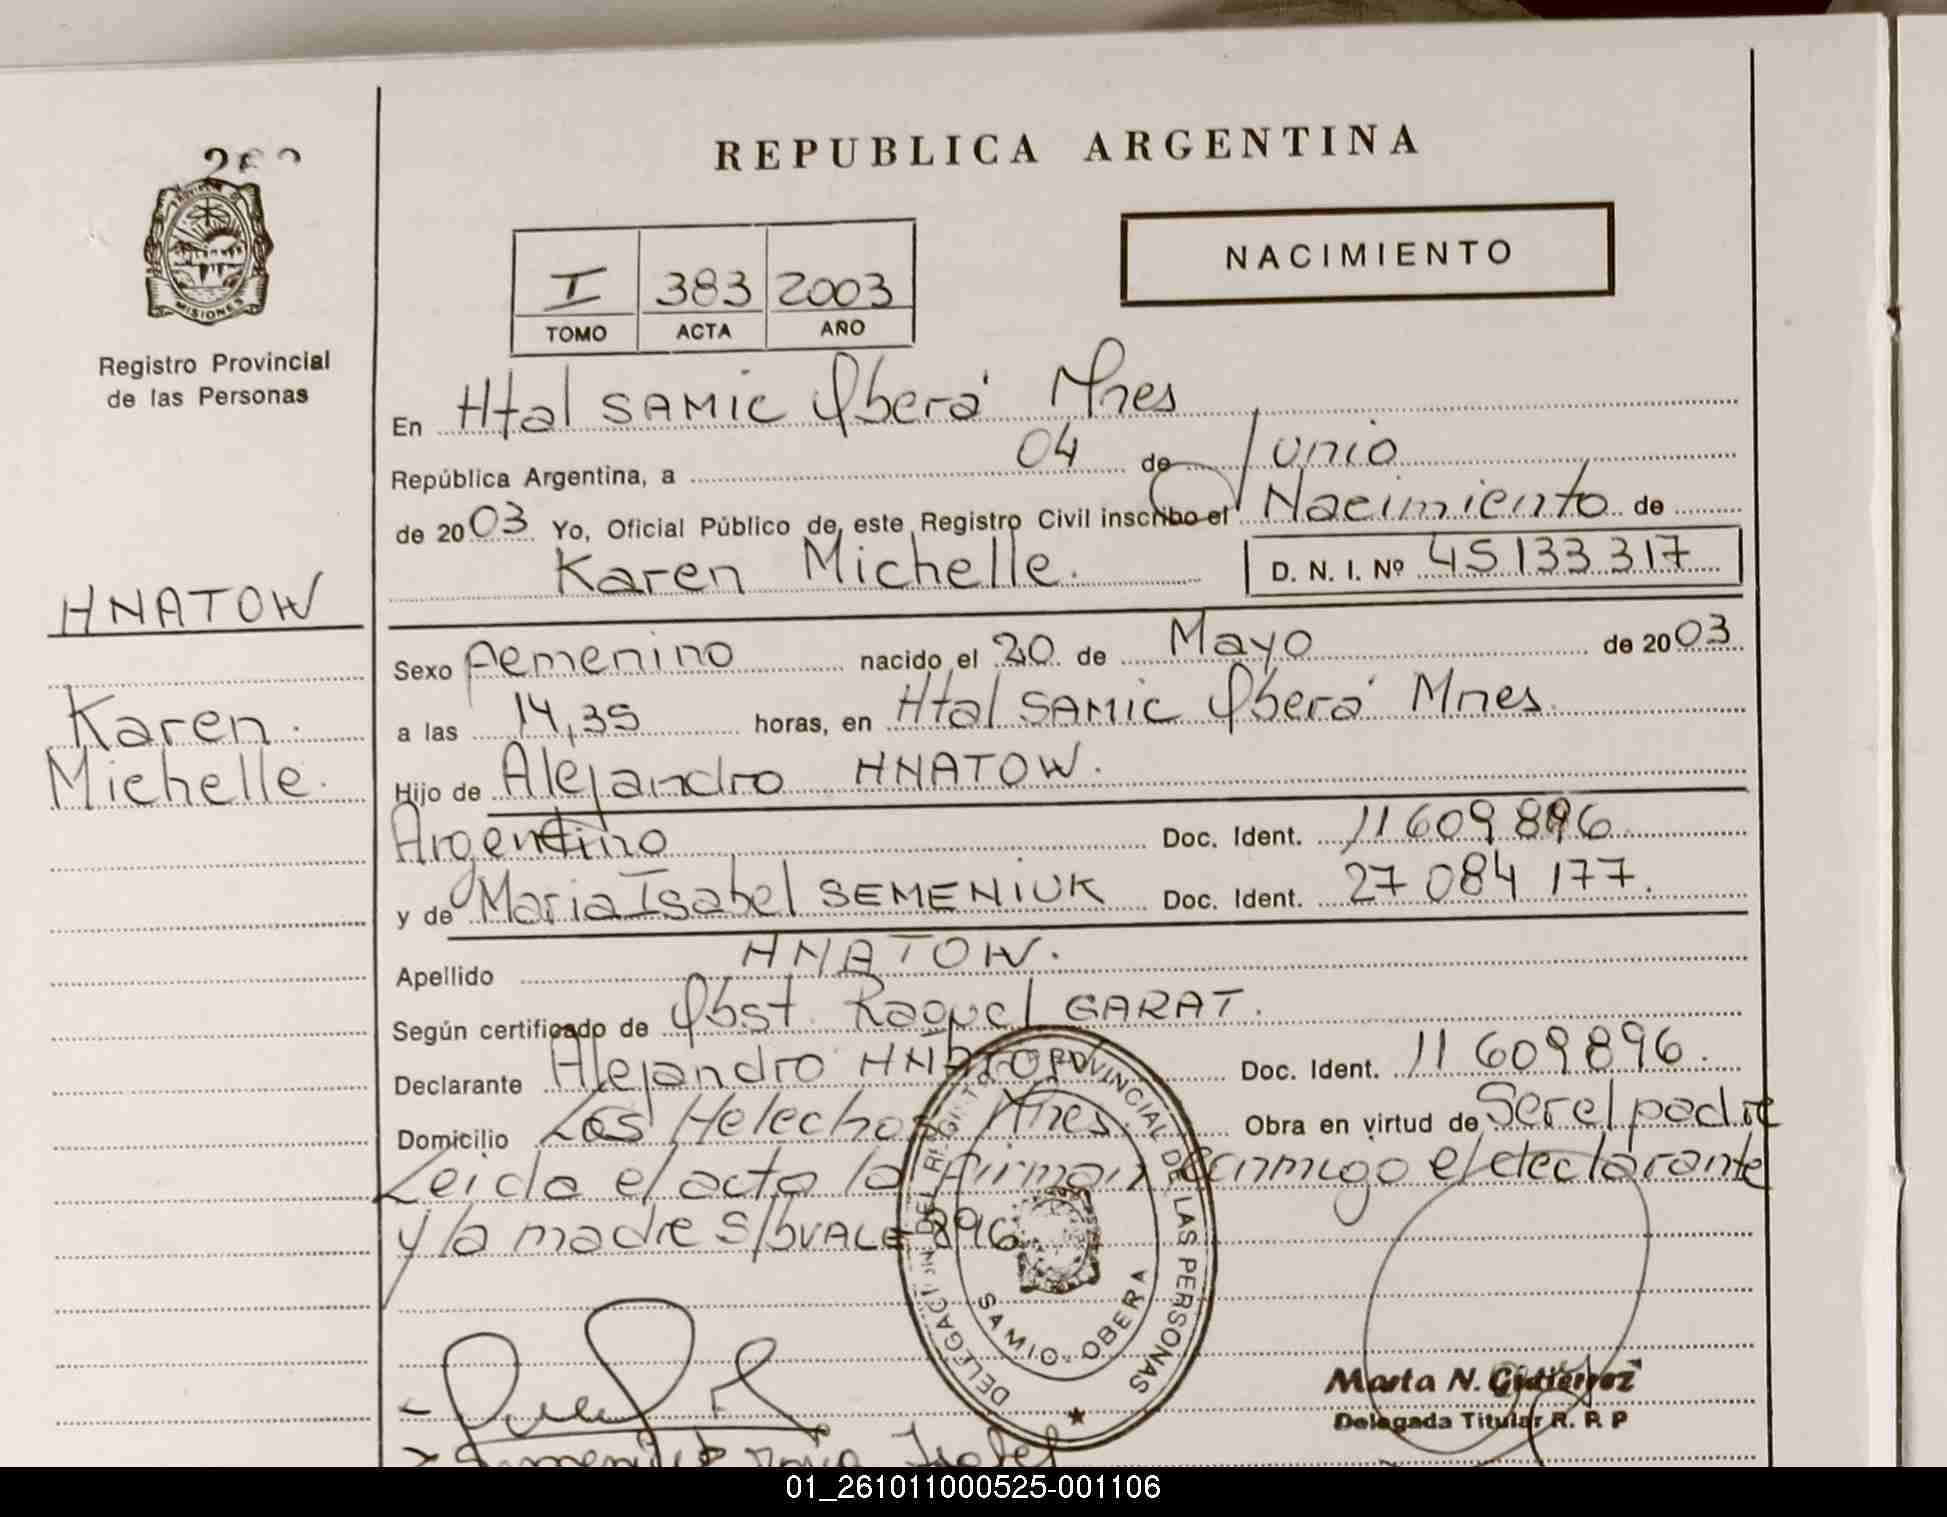 REPUBLICA ARGENTINA
PROVINCIA
MISIONES
Registro Provincial
de las Personas
NACIMIENTO
I 383 2003
TOMO ACTA AÑO
En Htal SAMIC Oberá Mnes
República Argentina, a 04 de Junio
de 2003 Yo, Oficial Público de este Registro Civil inscribo el Nacimiento de
Karen Michelle. D. N. I. Nº 45 133 317
HNATOW
Karen.
Michelle.
Sexo Femenino nacido el 20 de Mayo de 2003
a las 14,35 horas, en Htal SAMIC Oberá Mnes.
Hijo de Alejandro HNATOW.
Argentino Doc. Ident. 11 609 896
y de Maria Isabel SEMENIUK Doc. Ident. 27 084 177.
Apellido HNATOW.
Según certificado de Obst. Raquel GARAT.
Declarante Alejandro HNATOW Doc. Ident. 11 609896.
Domicilio Los Helechos Mnes. Obra en virtud de Ser el padre
Leida el acta la firman conmigo el declarante
y la madre S/b VALE 896
DELEGACION DEL REGISTRO PROVINCIAL DE LAS PERSONAS
SAMIC - OBERA
Marta N. Gutierrez
Delegada Titular R. P. P
Isabel
01_261011000525-001106